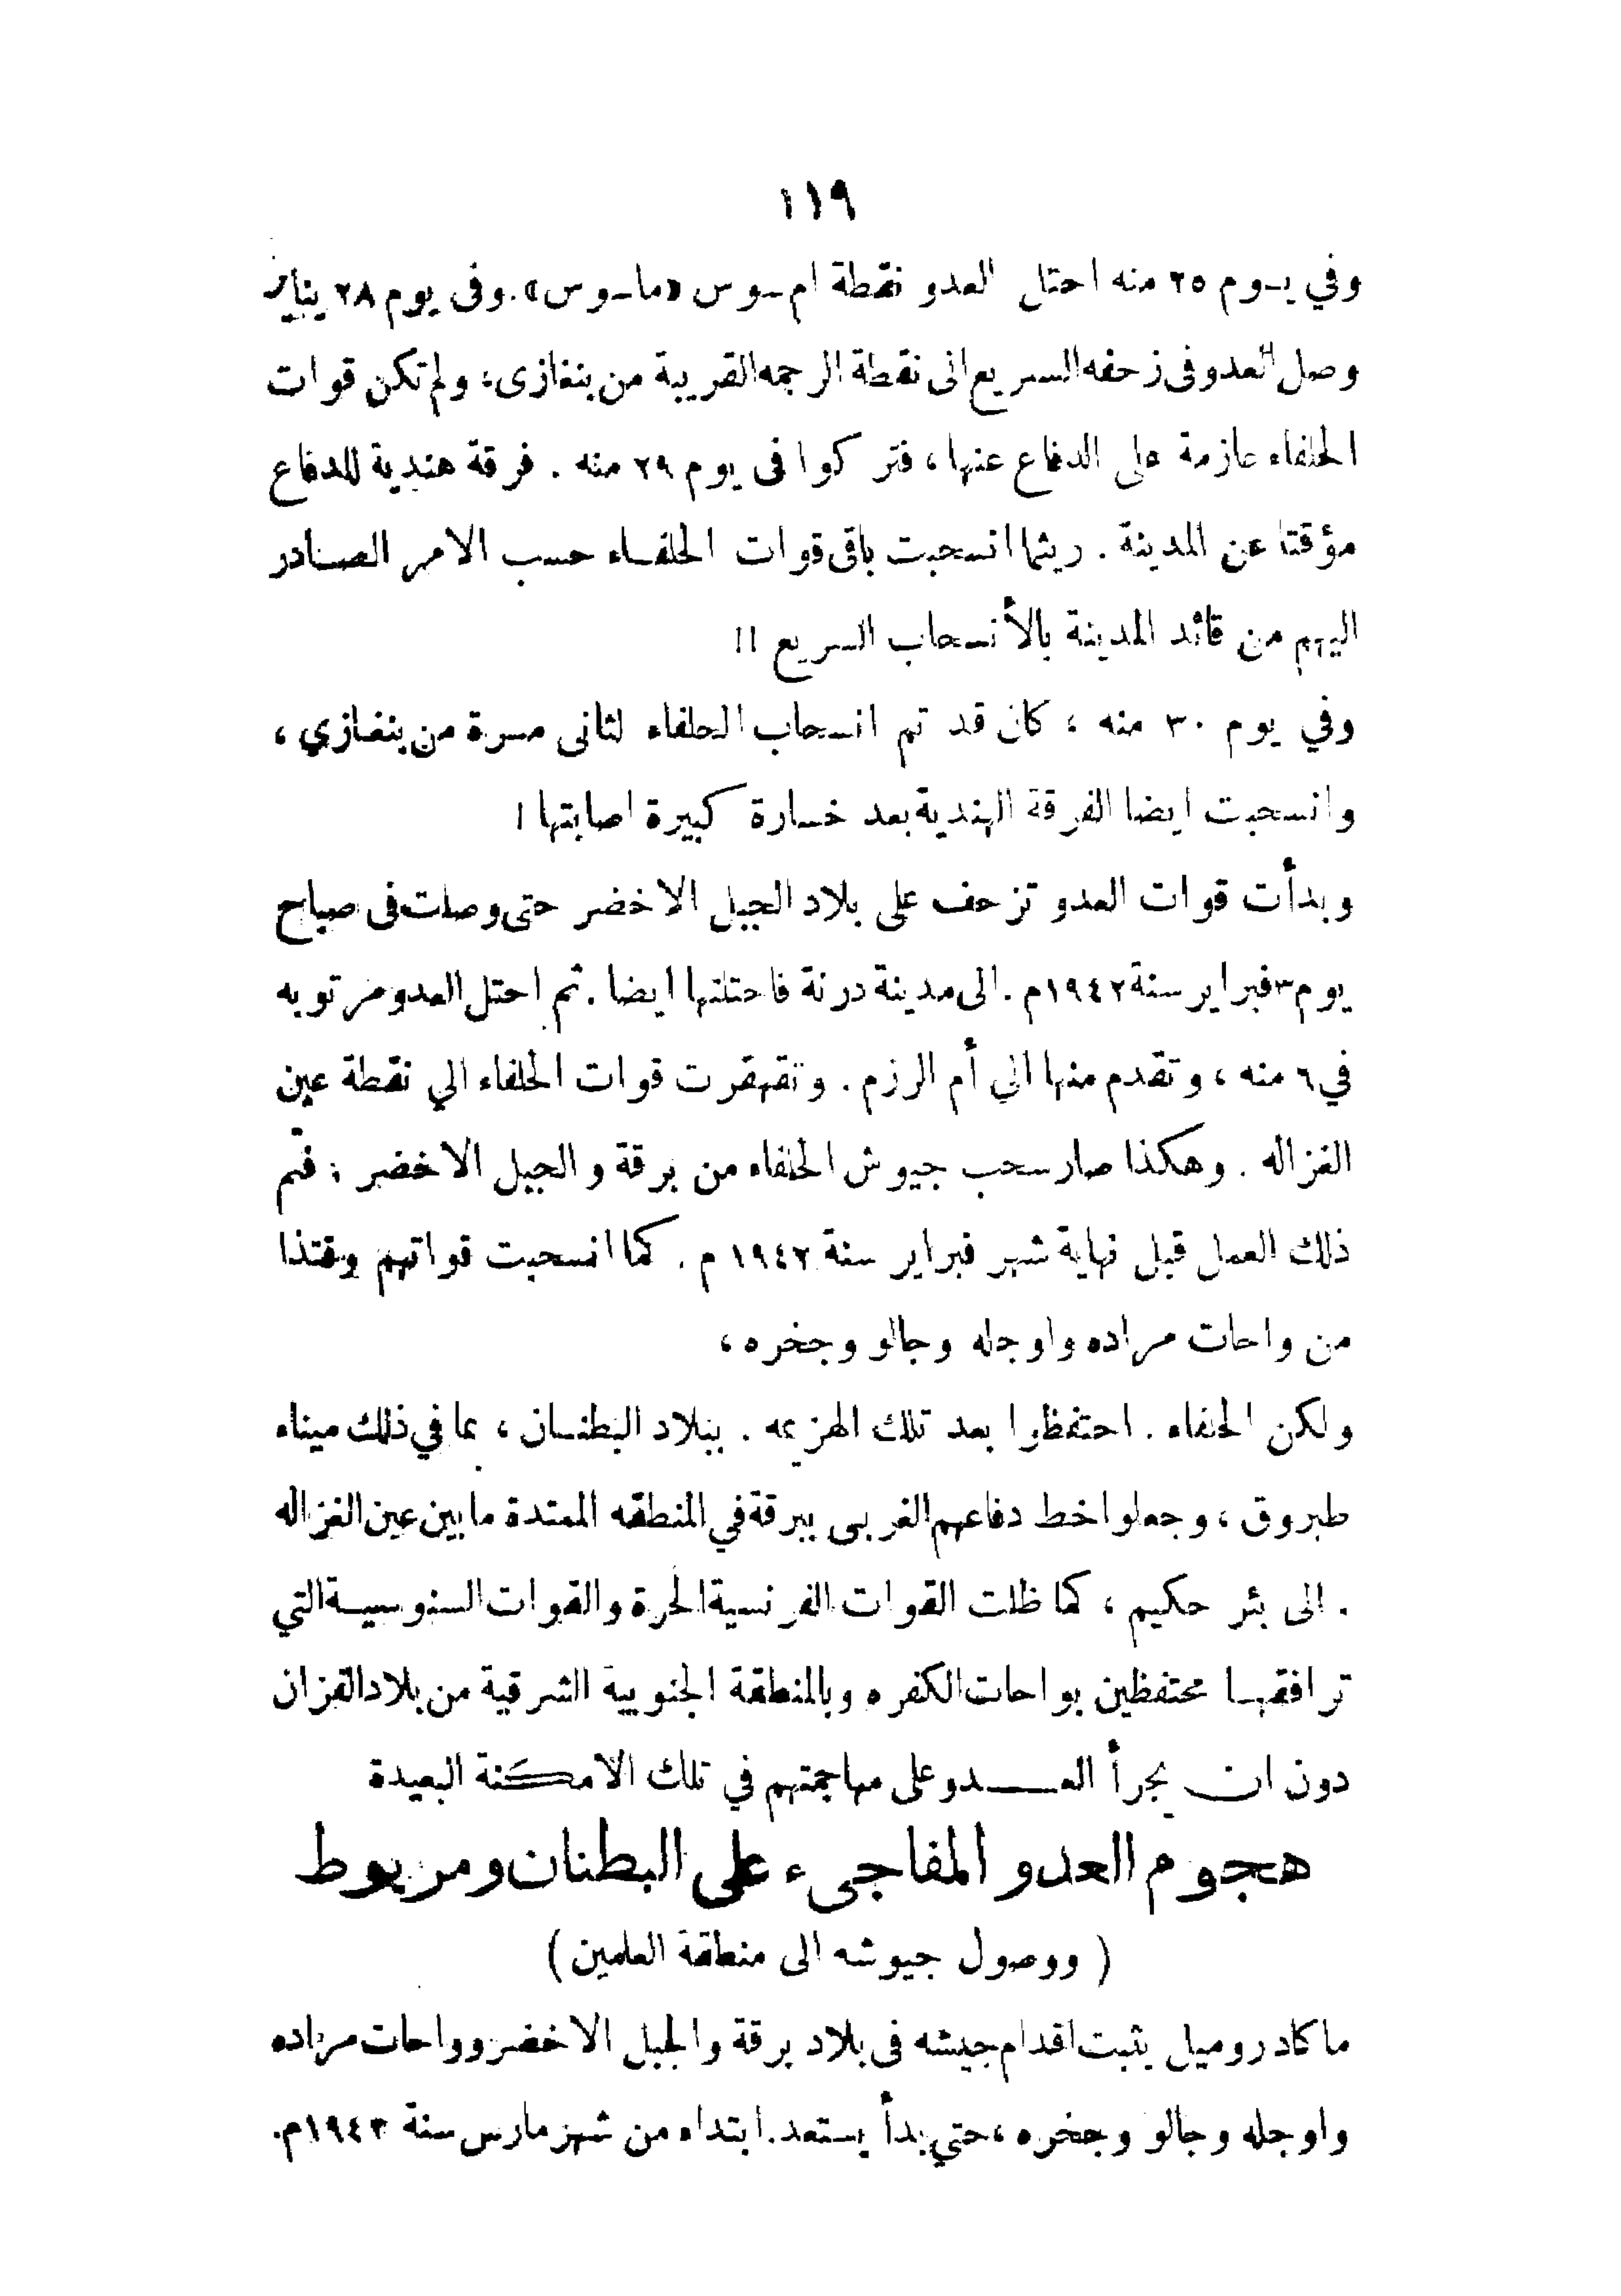 ١١٩
وفي يـوم ٢٥ منه احتل العدو نقطة ام ـوس «ماـوس». وفى يوم ٢٨ يناير
وصل العدو فى زحفه السريع الى نقطة الرجمه القريبة من بنغازى، ولم تكن قوات
الحلفاء عازمة على الدفاع عنها، فتركوا فى يوم ٢٩ منه . فرقة هندية للدفاع
مؤقتا عن المدينة . ريثما انسحبت باقى قوات الحلفـاء حسب الامر الصـادر
اليهم من قائد المدينة بالأنسحاب السريع !!
وفي يوم ٣٠ منه ، كان قد تم انسحاب الحلفاء لثانى مرة من بنغازي ،
وانسحبت ايضا الفرقة الهندية بعد خسارة كبيرة اصابتها !
وبدأت قوات العدو تزحف على بلاد الجبل الاخضر حتى وصلت فى صباح
يوم ٣ فبراير سنة ١٩٤٢م . الى مدينة درنة فاحتلتها ايضا . ثم احتل العدو مرتوبه
في ٦ منه ، وتقدم منها الي أم الرزم . وتقهقرت قوات الحلفاء الي نقطة عين
الغزاله . وهكذا صار سحب جيوش الحلفاء من برقة والجبل الاخضر ؛ فتم
ذلك العمل قبل نهاية شهر فبراير سنة ١٩٤٢ م . كما انسحبت قواتهم وقتذا
من واحات مراده واوجله وجالو وجخره ،
ولكن الحلفاء . احتفظوا بعد تلك الهزيمه . ببلاد البطنـان ، بما في ذلك ميناء
طبروق ، وجعلوا خط دفاعهم الغربى ببرقة في المنطقه الممتدة ما بين عين الغزاله
. الى بئر حكيم ، كما ظلت القوات الفرنسية الحرة والقوات السنوسيـة التي
ترافقهـا محتفظين بواحات الكفره وبالمنطقة الجنوبية الشرقية من بلاد الفزان
دون ان يجرأ العـــدو على مهاجمتهم في تلك الامكنة البعيدة
هجوم العدو المفاجىء على البطنان ومريوط
( ووصول جيوشه الى منطقة العلمين )
ما كاد روميل يثبت اقدام جيشه فى بلاد برقة والجبل الاخضر وواحات مراده
واوجله وجالو وجخره ، حتي بدأ يستعد . ابتداء من شهر مارس سنة ١٩٤٢م.